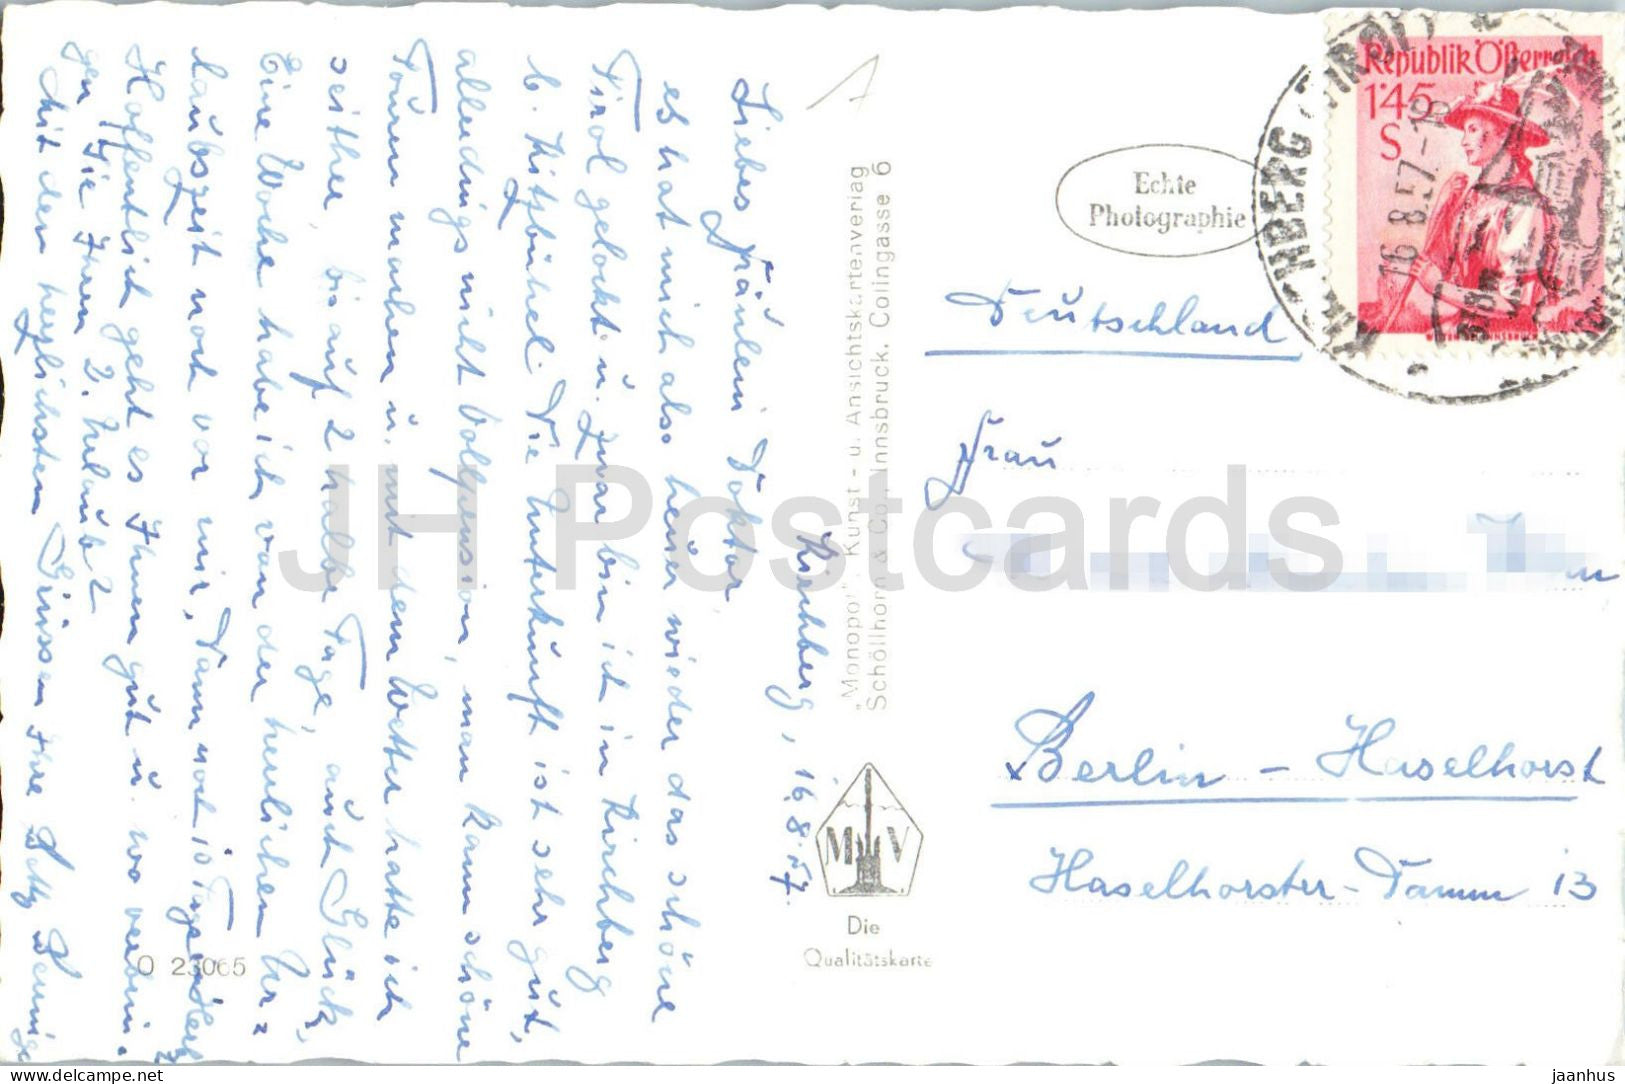 Kirchberg, 16.8.57.
Liebes Fräulein Doktor,
es hat mich also heuer wieder das schöne
Tirol gelockt u. zwar bin ich in Kirchberg
b. Kitzbühel. Die Unterkunft ist sehr gut,
allerdings nicht Vollpension, man kann schöne
Touren machen u. mit dem Wetter hatte ich
seither, bis auf 2 halbe Tage, auch Glück.
Eine Woche habe ich von der herrlichen Ur=
laubszeit noch vor mir, dann noch 10 Tage
Hoffentlich geht es Ihnen gut u. wo verbrin-
gen Sie Ihren 2. Urlaub?
Mit den herzlichsten Grüssen Ihre
"Monopol" Kunst- u. Ansichtskartenverlag
Schöllhorn & Co., Innsbruck, Colingasse 6
M V
Die
Qualitätskarte
O 23065
Echte
Photographie
Republik Österreich
1.45
S
16.8.57-18
Deutschland
Frau
Berlin - Haselhorst
Haselhorster-Damm 13
JH Postcards
www.delcampe.net
jaanhus